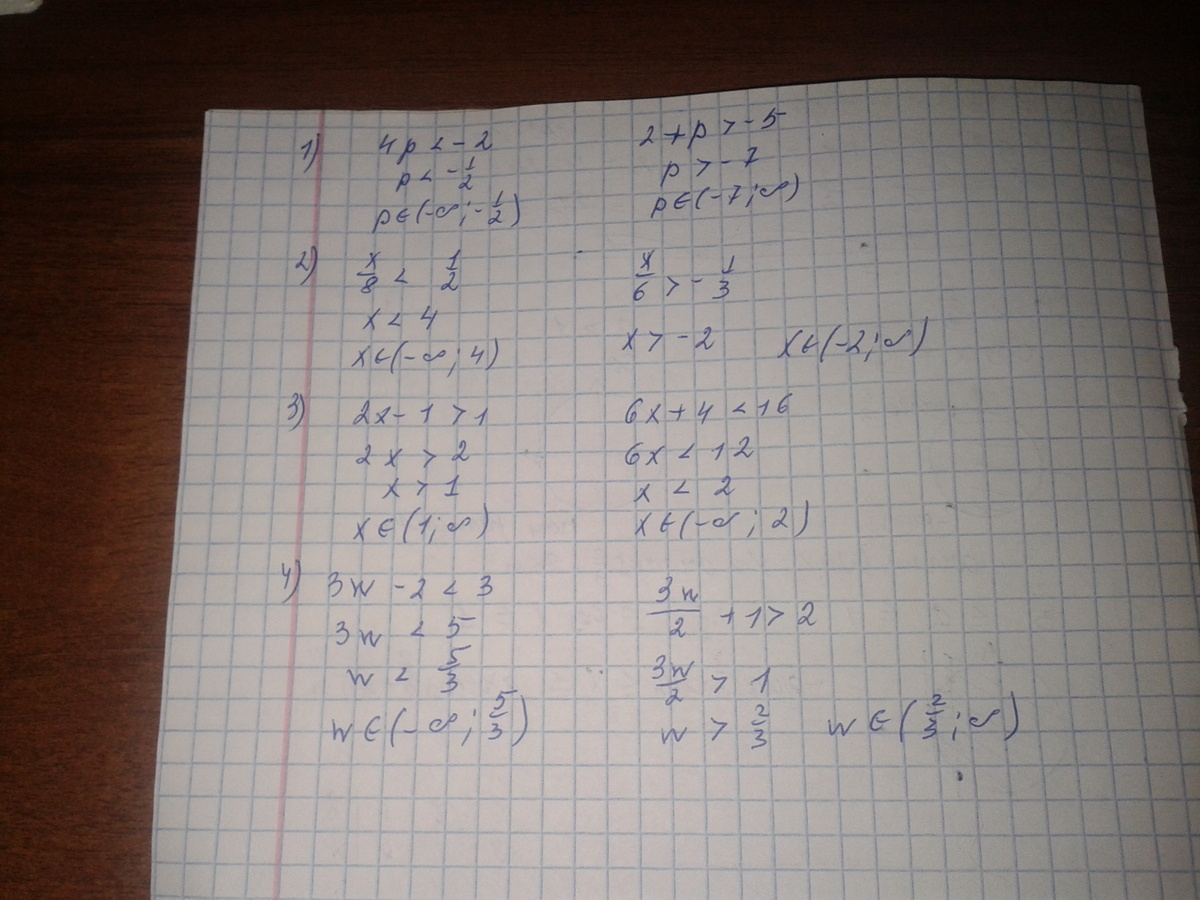 1) 4p < -2
p < -1/2
p∈(-∞; -1/2)
2 + p > -5
p > -7
p∈(-7; ∞)
2) x/8 < 1/2
x < 4
x∈(-∞; 4)
x/6 > -1/3
x > -2 x∈(-2; ∞)
3) 2x - 1 > 1
2x > 2
x > 1
x∈(1; ∞)
6x + 4 < 16
6x < 12
x < 2
x∈(-∞; 2)
4) 3w - 2 < 3
3w < 5
w < 5/3
w∈(-∞; 5/3)
3w/2 + 1 > 2
3w/2 > 1
w > 2/3 w∈(2/3; ∞)